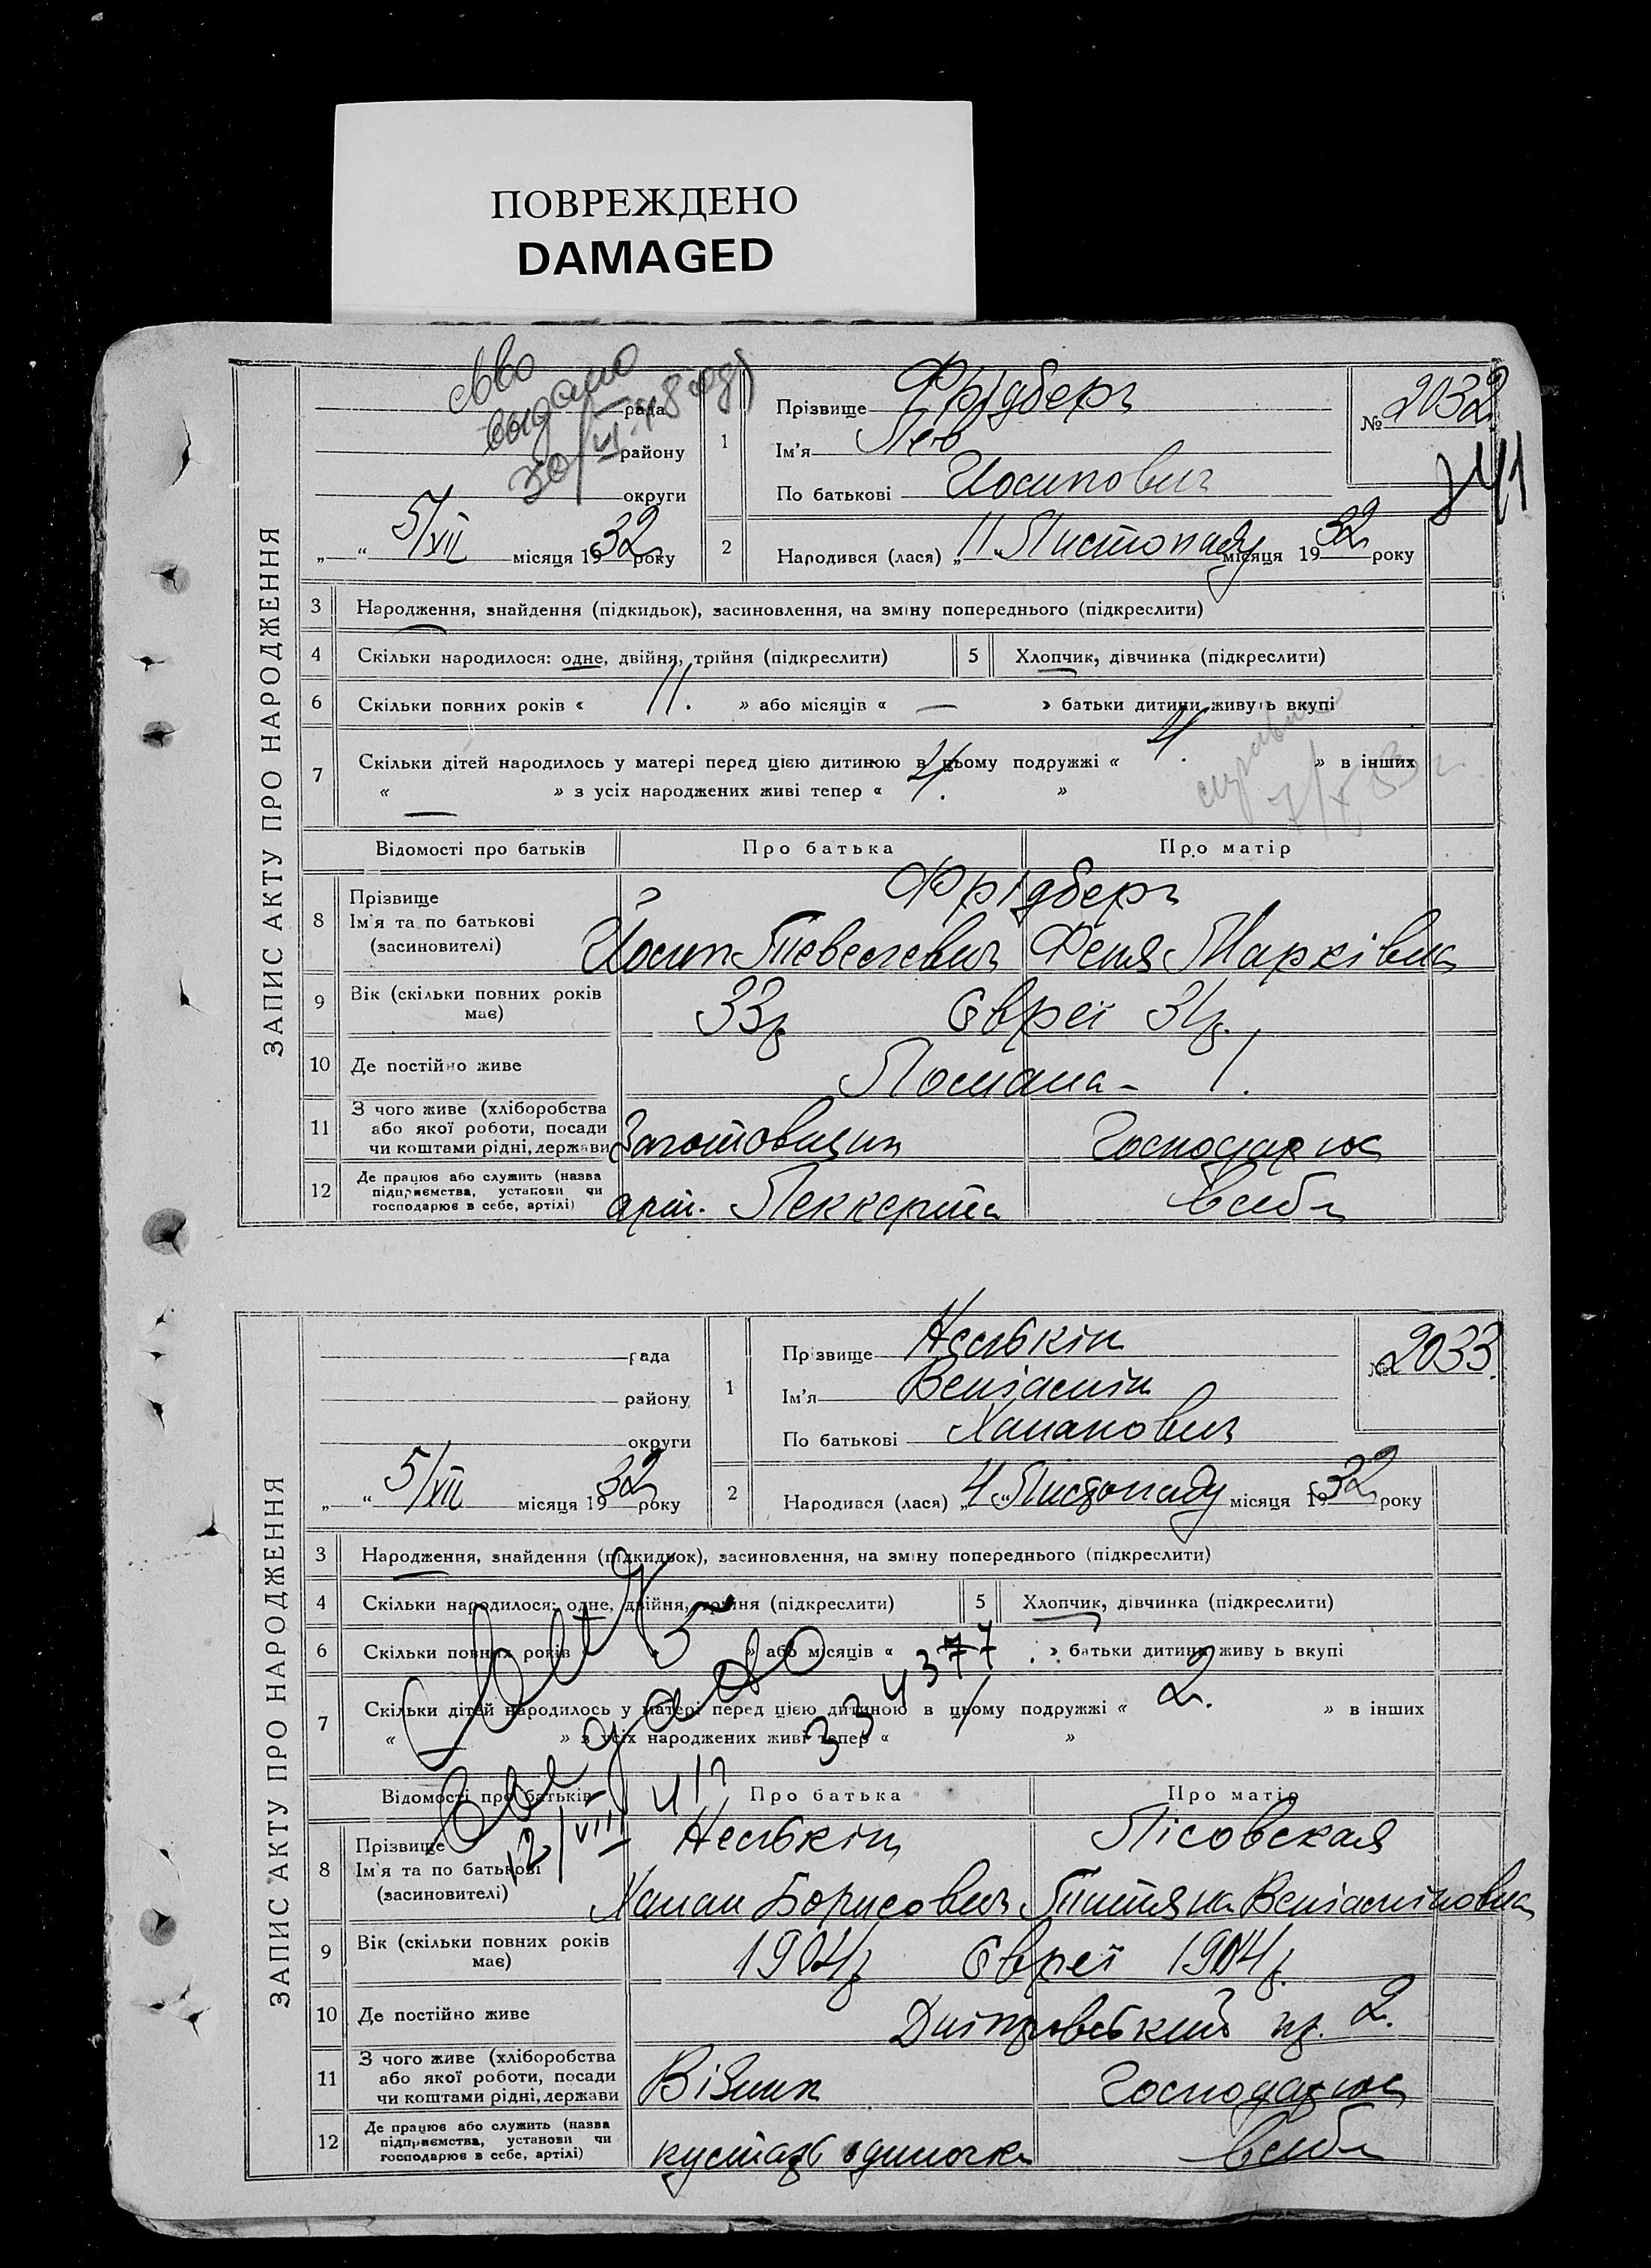 ПОВРЕЖДЕНО
DAMAGED
ЗАПИС АКТУ ПРО НАРОДЖЕННЯ
рада
району
округи
„ “ 5/VII місяця 1932 року
1
Прізвище Фрідберг
Ім'я Лев
По батькові Йосипович
№ 2032
2 Народився (лася) „11 Листопаду місяця 1932 року
3 Народження, знайдення (підкидьок), засиновлення, на зміну попереднього (підкреслити)
4 Скільки народилося: одне, двійня, трійня (підкреслити)
5 Хлопчик, дівчинка (підкреслити)
6 Скільки повних років « 11. » або місяців « — » батьки дитини живуть вкупі
7 Скільки дітей народилось у матері перед цією дитиною в цьому подружжі « 4. » в інших
« — » з усіх народжених живі тепер « 4. »
Відомості про батьків Про батька Про матір
8 Прізвище Фрідберг
Ім'я та по батькові Йосип Тевелевич Феня Марківна
(засиновителі)
9 Вік (скільки повних років має) 33р Євреї 31р.
10 Де постійно живе
11 З чого живе (хліборобства або якої роботи, посади чи коштами рідні, держави Заготовщик Господарює
12 Де працює або служить (назва підприємства, установи чи господарює в себе, артілі) арт. Леккерта в себе
ЗАПИС АКТУ ПРО НАРОДЖЕННЯ
рада
району
округи
„ “ 5/VII місяця 1932 року
1
Прізвище
Ім'я Веніамін
По батькові Хананович
№ 2033
2 Народився (лася) „4“ Листопаду місяця 1932 року
3 Народження, знайдення (підкидьок), засиновлення, на зміну попереднього (підкреслити)
4 Скільки народилося: одне, двійня, трійня (підкреслити)
5 Хлопчик, дівчинка (підкреслити)
6 Скільки повних років « 5 » або місяців « » батьки дитини живуть вкупі
7 Скільки дітей народилось у матері перед цією дитиною в цьому подружжі « 2. » в інших
« — » з усіх народжених живі тепер « 1 »
Відомості про батьків Про батька Про матір
8 Прізвище Лісовская
Ім'я та по батькові Ханан Борисович Веніаміновна
(засиновителі)
9 Вік (скільки повних років має) 1904р Євреї 1904р.
10 Де постійно живе Дніпровський пр. 2.
11 З чого живе (хліборобства або якої роботи, посади чи коштами рідні, держави Візник Господарює
12 Де працює або служить (назва підприємства, установи чи господарює в себе, артілі) кустарь одиночка в себе